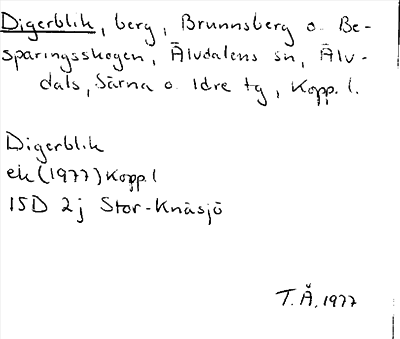 Digerblik, berg, Brunnsberg o. Be-
sparingsskogen, Älvdalens sn, Älv-
dals, Särna o. Idre tg, Kopp. l.
Digerblik
ek (1977) Kopp. l
15D 2j Stor-Knäsjö
T. Å. 1977